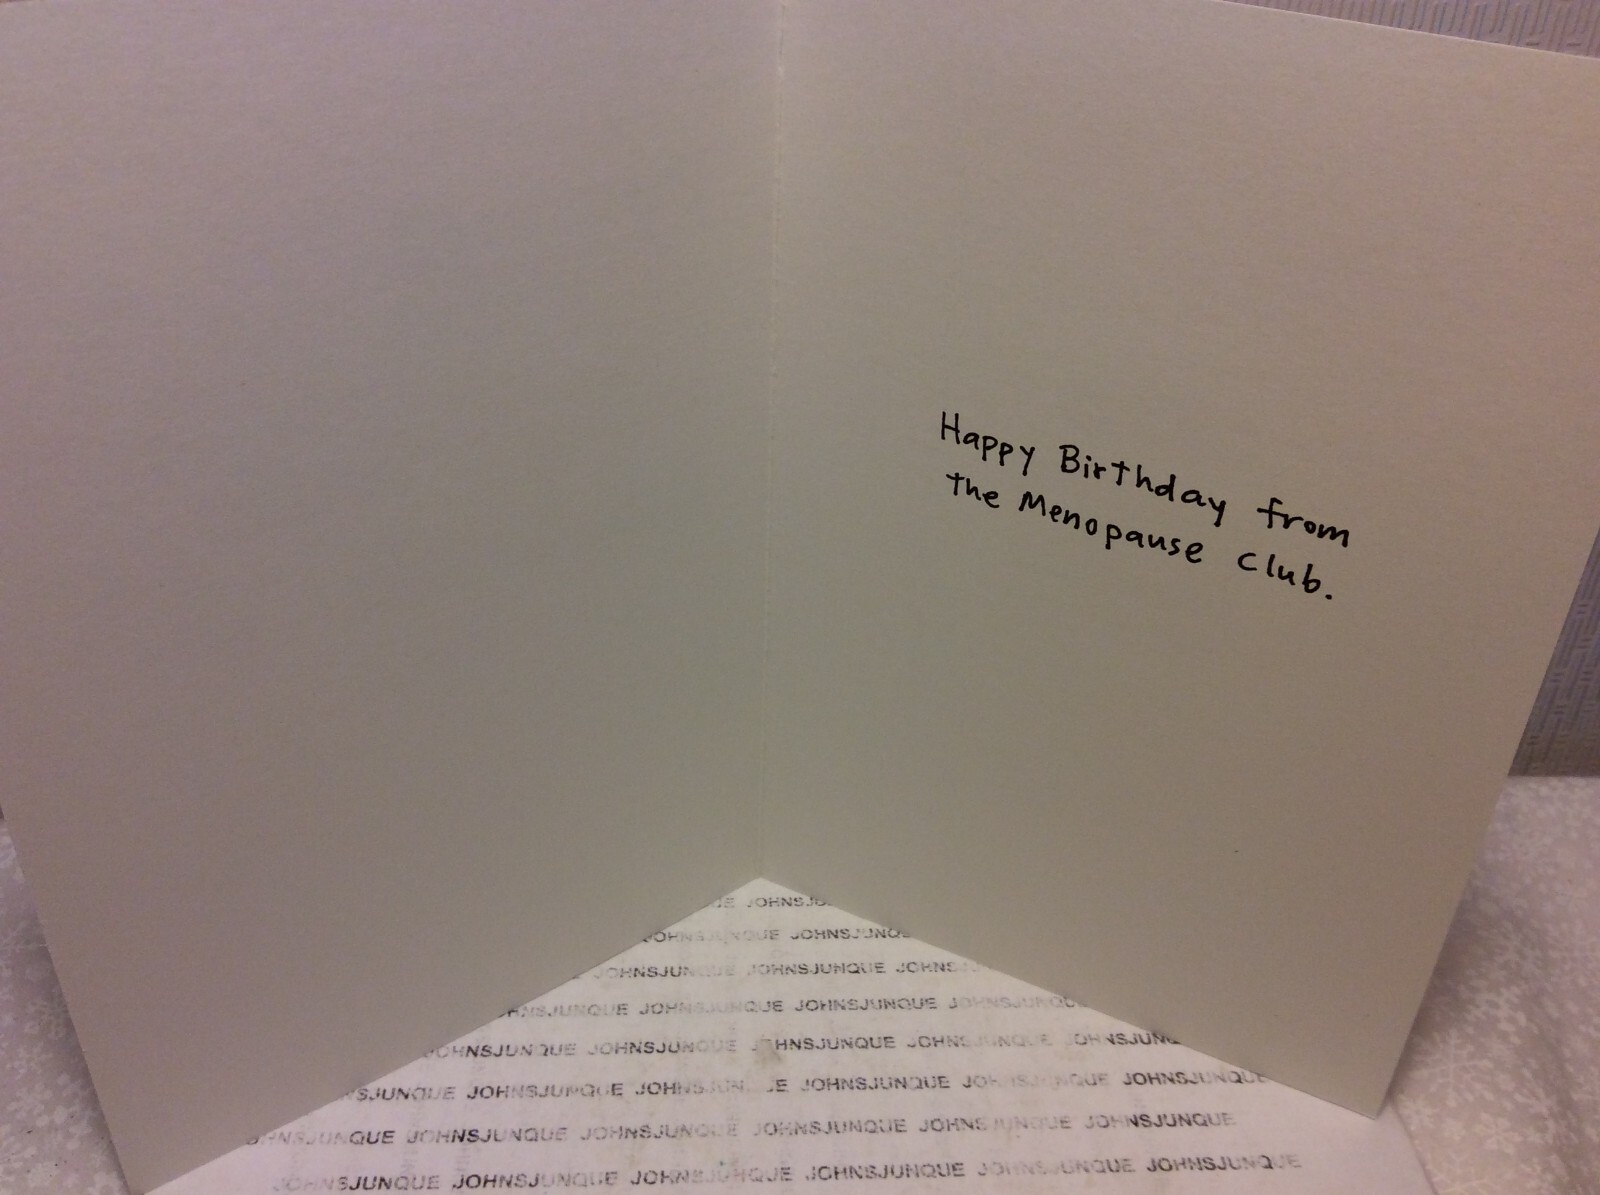 Happy Birthday from
the Menopause Club.
JOHNSJU
JOHNSJUNQUE JOHNSJUNQU
JOHNSJUNQUE JOHNSJUNQUE JOHNS
JOHNSJUNQUE JOHNSJUNQUE JOHNSJUNQUE JOHNSJUNQU
JOHNSJUNQUE JOHNSJUNQUE JOHNSJUNQUE JOHNSJUNQUE JOHNSJUNQ
NSJUNQUE JOHNSJUNQUE JOHNSJUN JE JOHNSJUNQUE JOHNSJUNQUE JOHNSJUNQUE
JOHNSJUNQUE JOHNSJUNQUE JOHNSJUNQUE JOHNSJUNQUE JOHNSJUNQUE JOHNSJUNQUE
JOHNSJUNQUE JOHNSJUNQUE JOHNSJUNQUE JOHNSJUNQUE JOHNSJUNQUE JOHNSJUNQUE